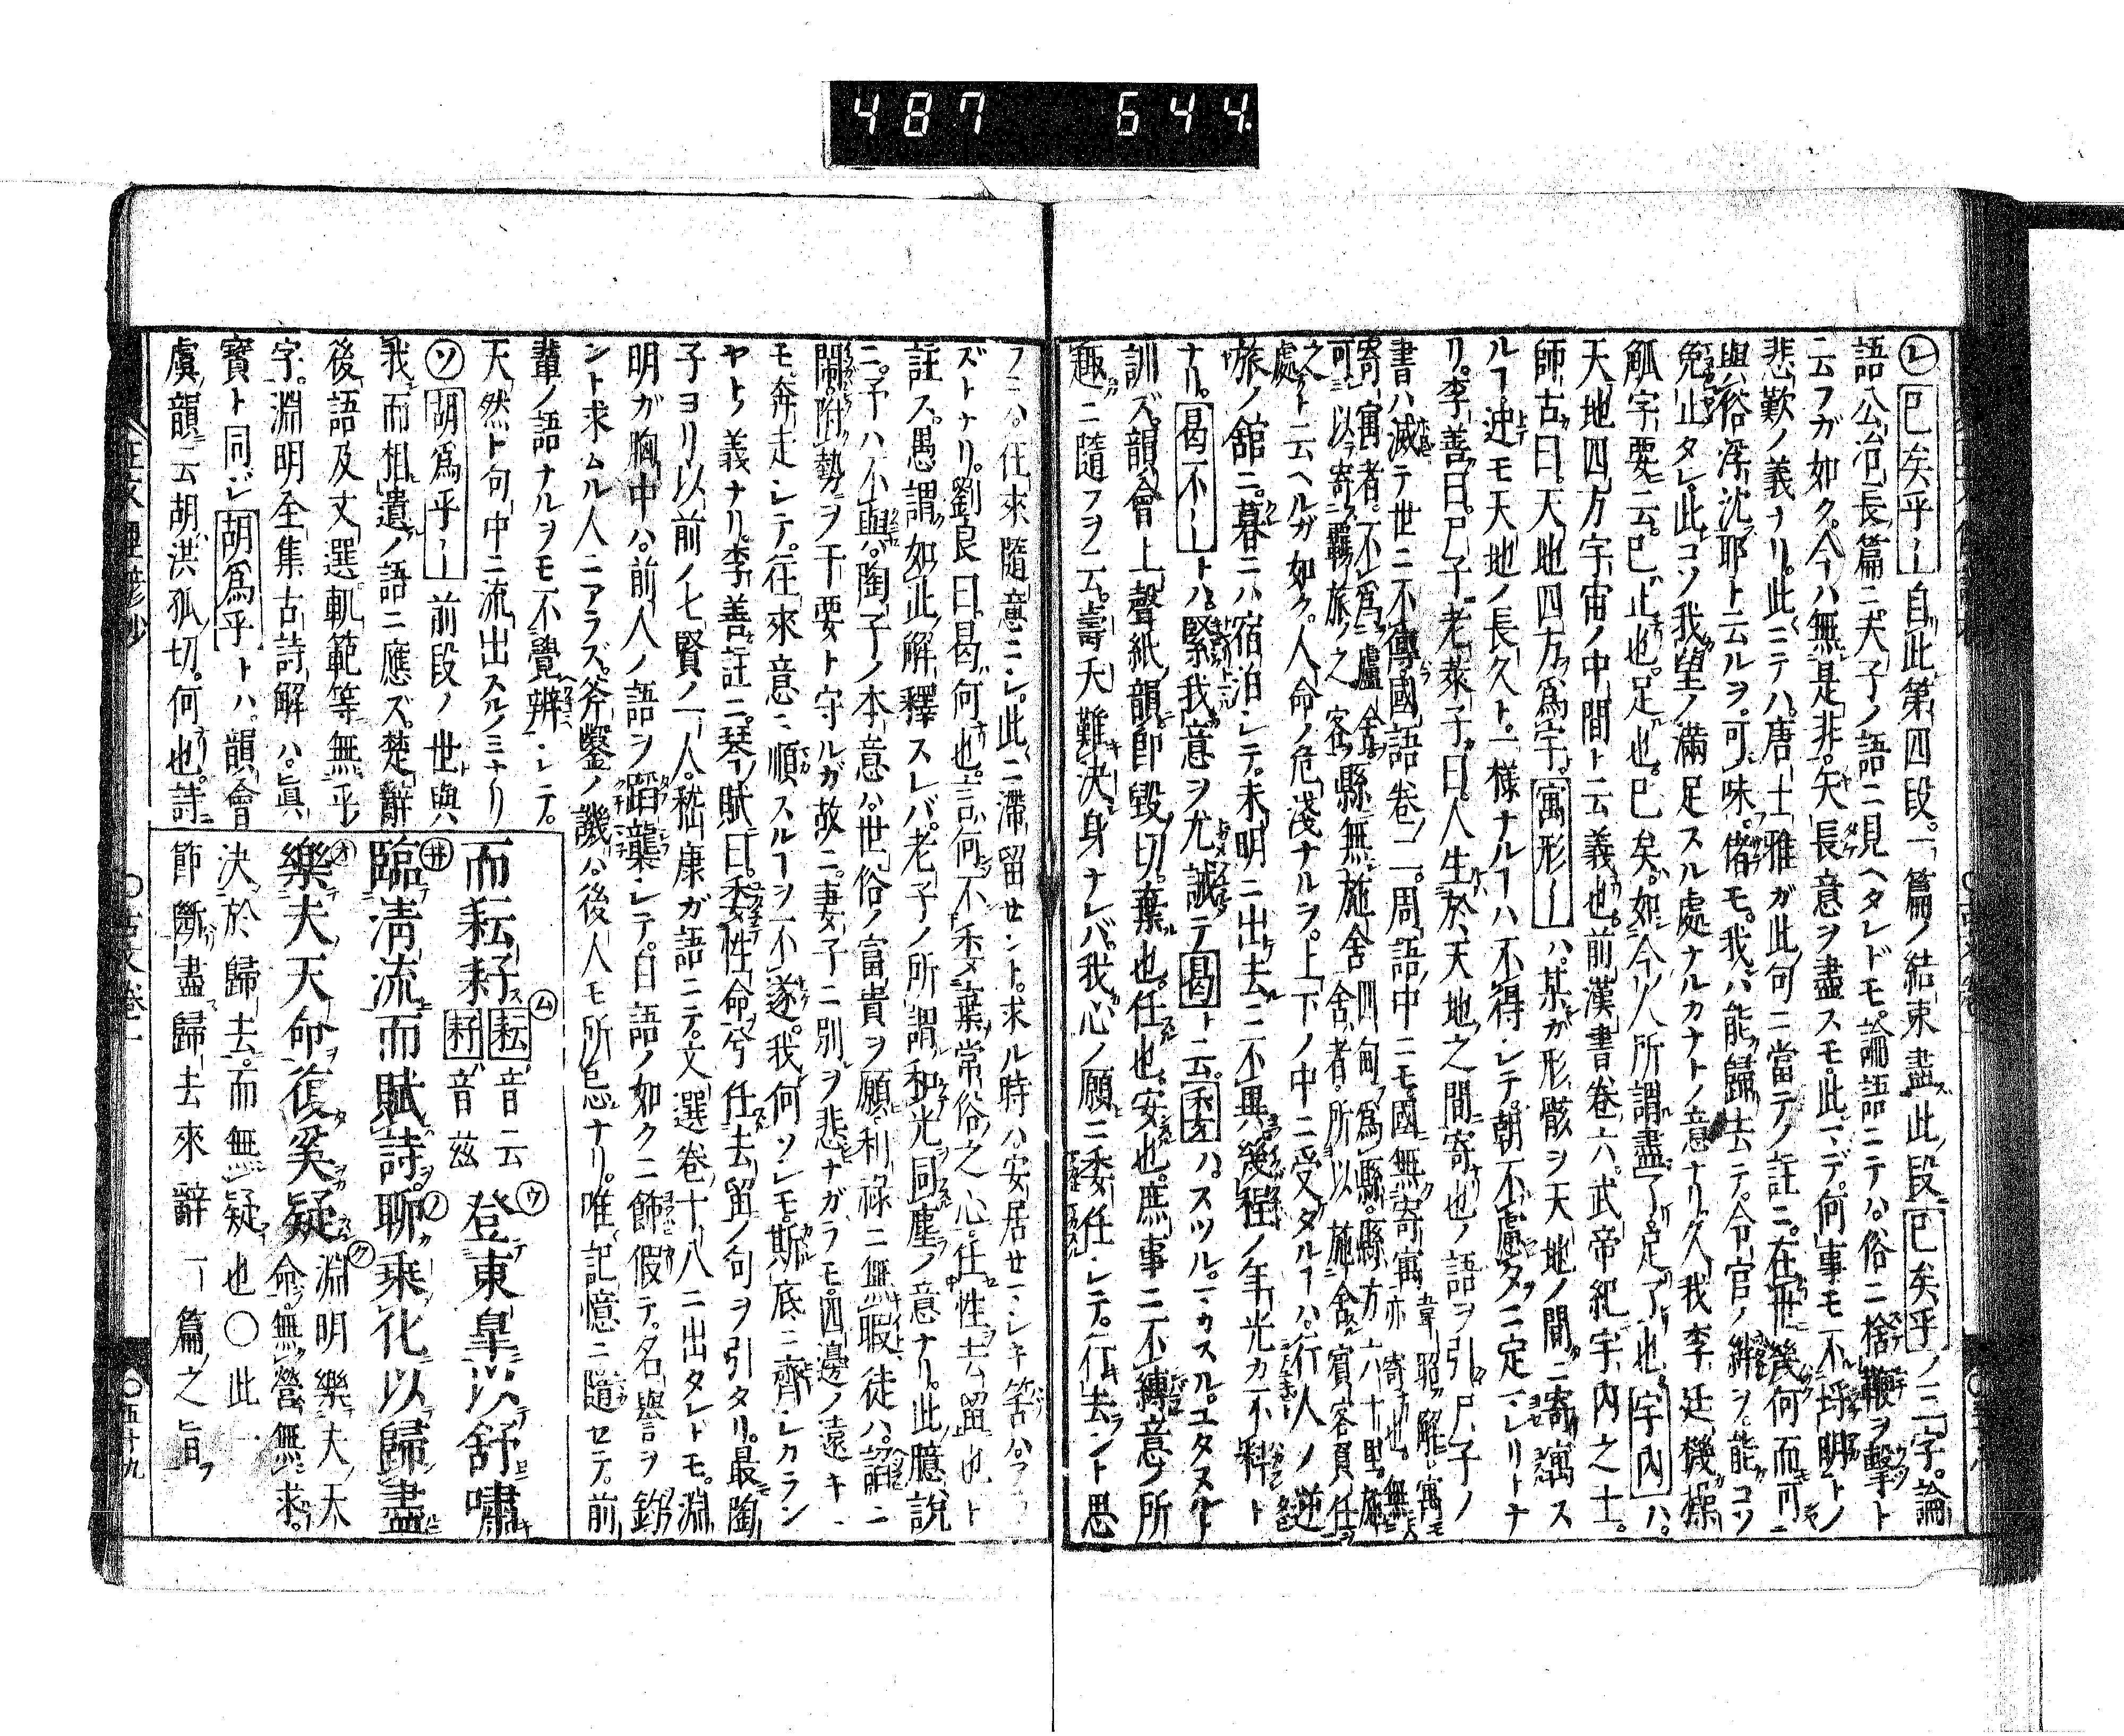 487 644
㋹巳矣乎ー自此第四段。一篇ノ結束盡此段巳矣乎ノ三字。論
語公冶長篇ニ夫子ノ語ニ見ヘタレドモ。論語ニテハ。俗ニ捨鞭ヲ撃ト
云フガ如ク。今ハ無是非。矢長意ヲ盡スモ。此デ。何事モ不埒明トノ
悲歎ノ義ナリ。此ニテハ。唐士雅ガ此句ニ當テノ註ニ。在世幾何而可
與俗浮沈耶ト云ルヲ。可味。偖モ。我ハ能歸去テ。令官ノ絆ヲ。能コソ
免止タレ。此コソ我望ノ滿足スル處ナルカナトノ意ナリ。久我李廷機採
觚字要云。巳止也。足也。巳矣。如今ノ人所謂盡了。足了也。宇内ハ。
天地四方宇宙ノ中間ト云義也。前漢書卷六武帝紀宇内之士。
師古曰。天地四方爲宇。寓形ーハ。某ガ形骸ヲ天地ノ間ニ寄寓ス
ルヿ。迚モ天地ノ長久ト。一樣ナルヿハ不得シテ。朝不慮夕ニ定レリトナ
リ。李善曰。尸子。老萊子曰。人生於天地之間寄也ノ語ヲ引。尸子ノ
書ハ滅テ世ニ不傳。國語卷二周語中ニモ。國無寄寓 韋昭解寓亦寄也。無
寄寓者。不爲廬舍可以寄羈旅之客 縣無施舍 四甸爲縣。縣方六十里。施舍賓客負任
之處ト云ヘルガ如ク。人命ノ危淺ナルヲ。上下ノ中ニ受タルヿハ。行人ノ逆
旅ノ舘ニ。暮ニハ宿泊シテ。未明ニ出去ニ不異。幾程ノ年光カ不料ト
ナリ。曷不ートハ。緊我意ヲ尤誡テ曷ト云。委ハ。スツル。マカスル。ユタヌト
訓ズ。韻會上聲紙韻卽毀切。棄也。任也。安也。庶事ニ不縛意ノ所
趣ニ隨フヲ云。壽夭難決身ナレバ。我心ノ願ニ委任シテ。行去ント思
フニハ。任來隨意ニシ。此ニ滯留セント。求ル時ハ安居セマシキ筈ハアラ
ズトナリ。劉良曰。曷何也。言何不委棄常俗之心。任性去留也ト
註ス。愚謂如此解釋スレバ。老子ノ所謂和光同塵ノ意ナリ。此臆說
ニ。予ハ不與。陶子ノ本意ハ。世俗ノ富貴ヲ願。利祿ニ無暇徒ハ。諂ニ
鬧附勢ヲ干要ト守ルガ故ニ。妻子ニ別ヲ悲ナガラモ。四邊ノ遠キ
モ。奔走シテ。往來意ニ順スルヿヲ不遂。我何ソンモ。斯底ニ齊シカラン
ヤトノ義ナリ。李善註ニ。琴賦曰。委性命兮任去留ノ句ヲ引タリ。最陶
子ヨリ以前ノ七賢ノ一人。嵇康ガ語ニテ。文選卷十八ニ出タレトモ。淵
明ガ胸中ハ。前人ノ語ヲ蹈襲シテ。自語ノ如クニ飾假テ。名譽ヲ釣
ント求ムル人ニアラズ。斧鑿ノ譏ハ。後人モ所忌ナリ。唯記憶ニ隨セテ。前
輩ノ語ナルヲモ不覺辨シテ。
天然ト句中ニ流出スルノミナリ
㋞胡爲乎ー前段ノ世與
我而相遺ノ語ニ應ズ。楚辭
後語及文選軌範等無乎
字。淵明全集古詩解ハ。眞
寶ト同ジ胡爲乎トハ。韻會
虞韻云胡洪孤切。何也。詩
而耘耔㋰耘音云耔音兹㋒登東皐以舒嘯
㋼臨清流而賦詩㋨聊乘化以歸盡
㋔樂夫天命復奚疑㋗淵明樂夫天命。無營無求。
決於歸去。而無疑也〇此一
節斷盡歸去來辭一篇之旨
五十九